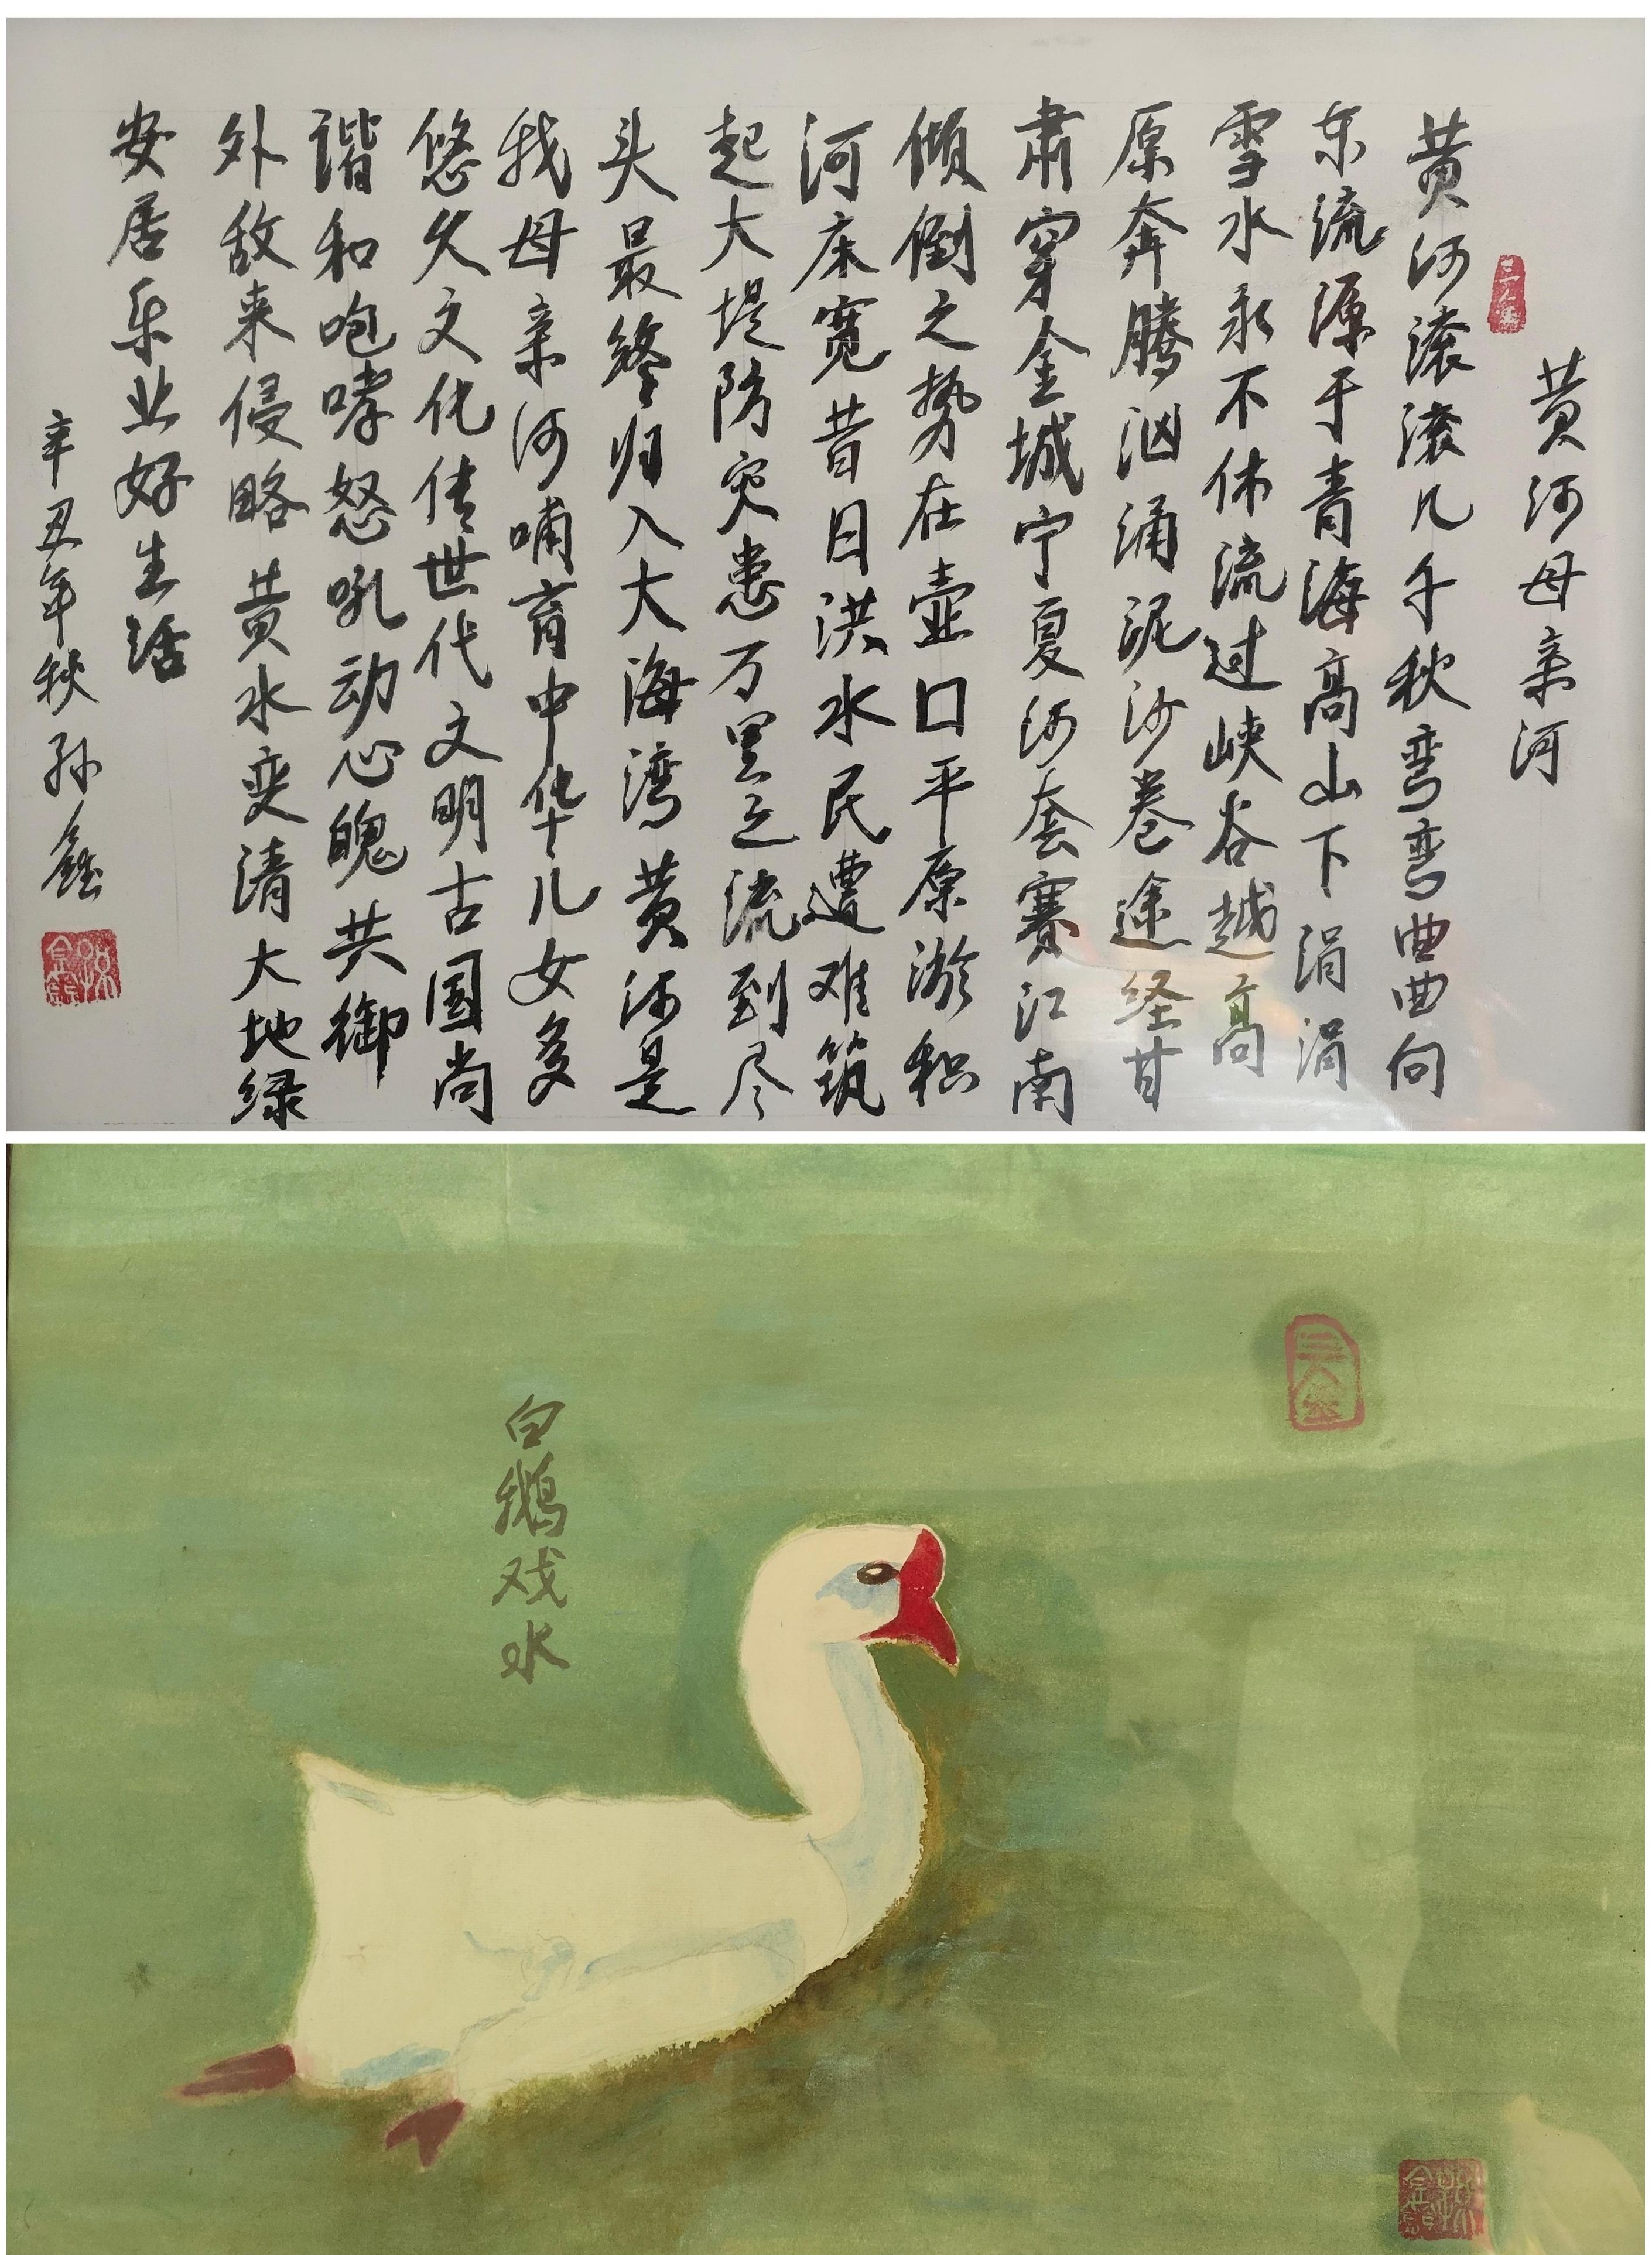 黄河母亲河
三金
黄河滚滚几千秋弯弯曲曲向
东流源于青海高山下涓涓
雪水永不休流过峡谷越高
原奔腾汹涌泥沙卷途经甘
肃穿金城宁夏河套赛江南
倾倒之势在壶口平原淤积
河床宽昔日洪水民遭难筑
起大堤防灾患万里之流到尽
头最终归入大海湾黄河是
我母亲河哺育中华儿女多
悠久文化传世代文明古国尚
谐和咆哮怒吼动心魄共御
外敌来侵略黄水变清大地绿
安居乐业好生活
辛丑年秋孙鑫
孙鑫
三金
白鹅戏水
孙鑫